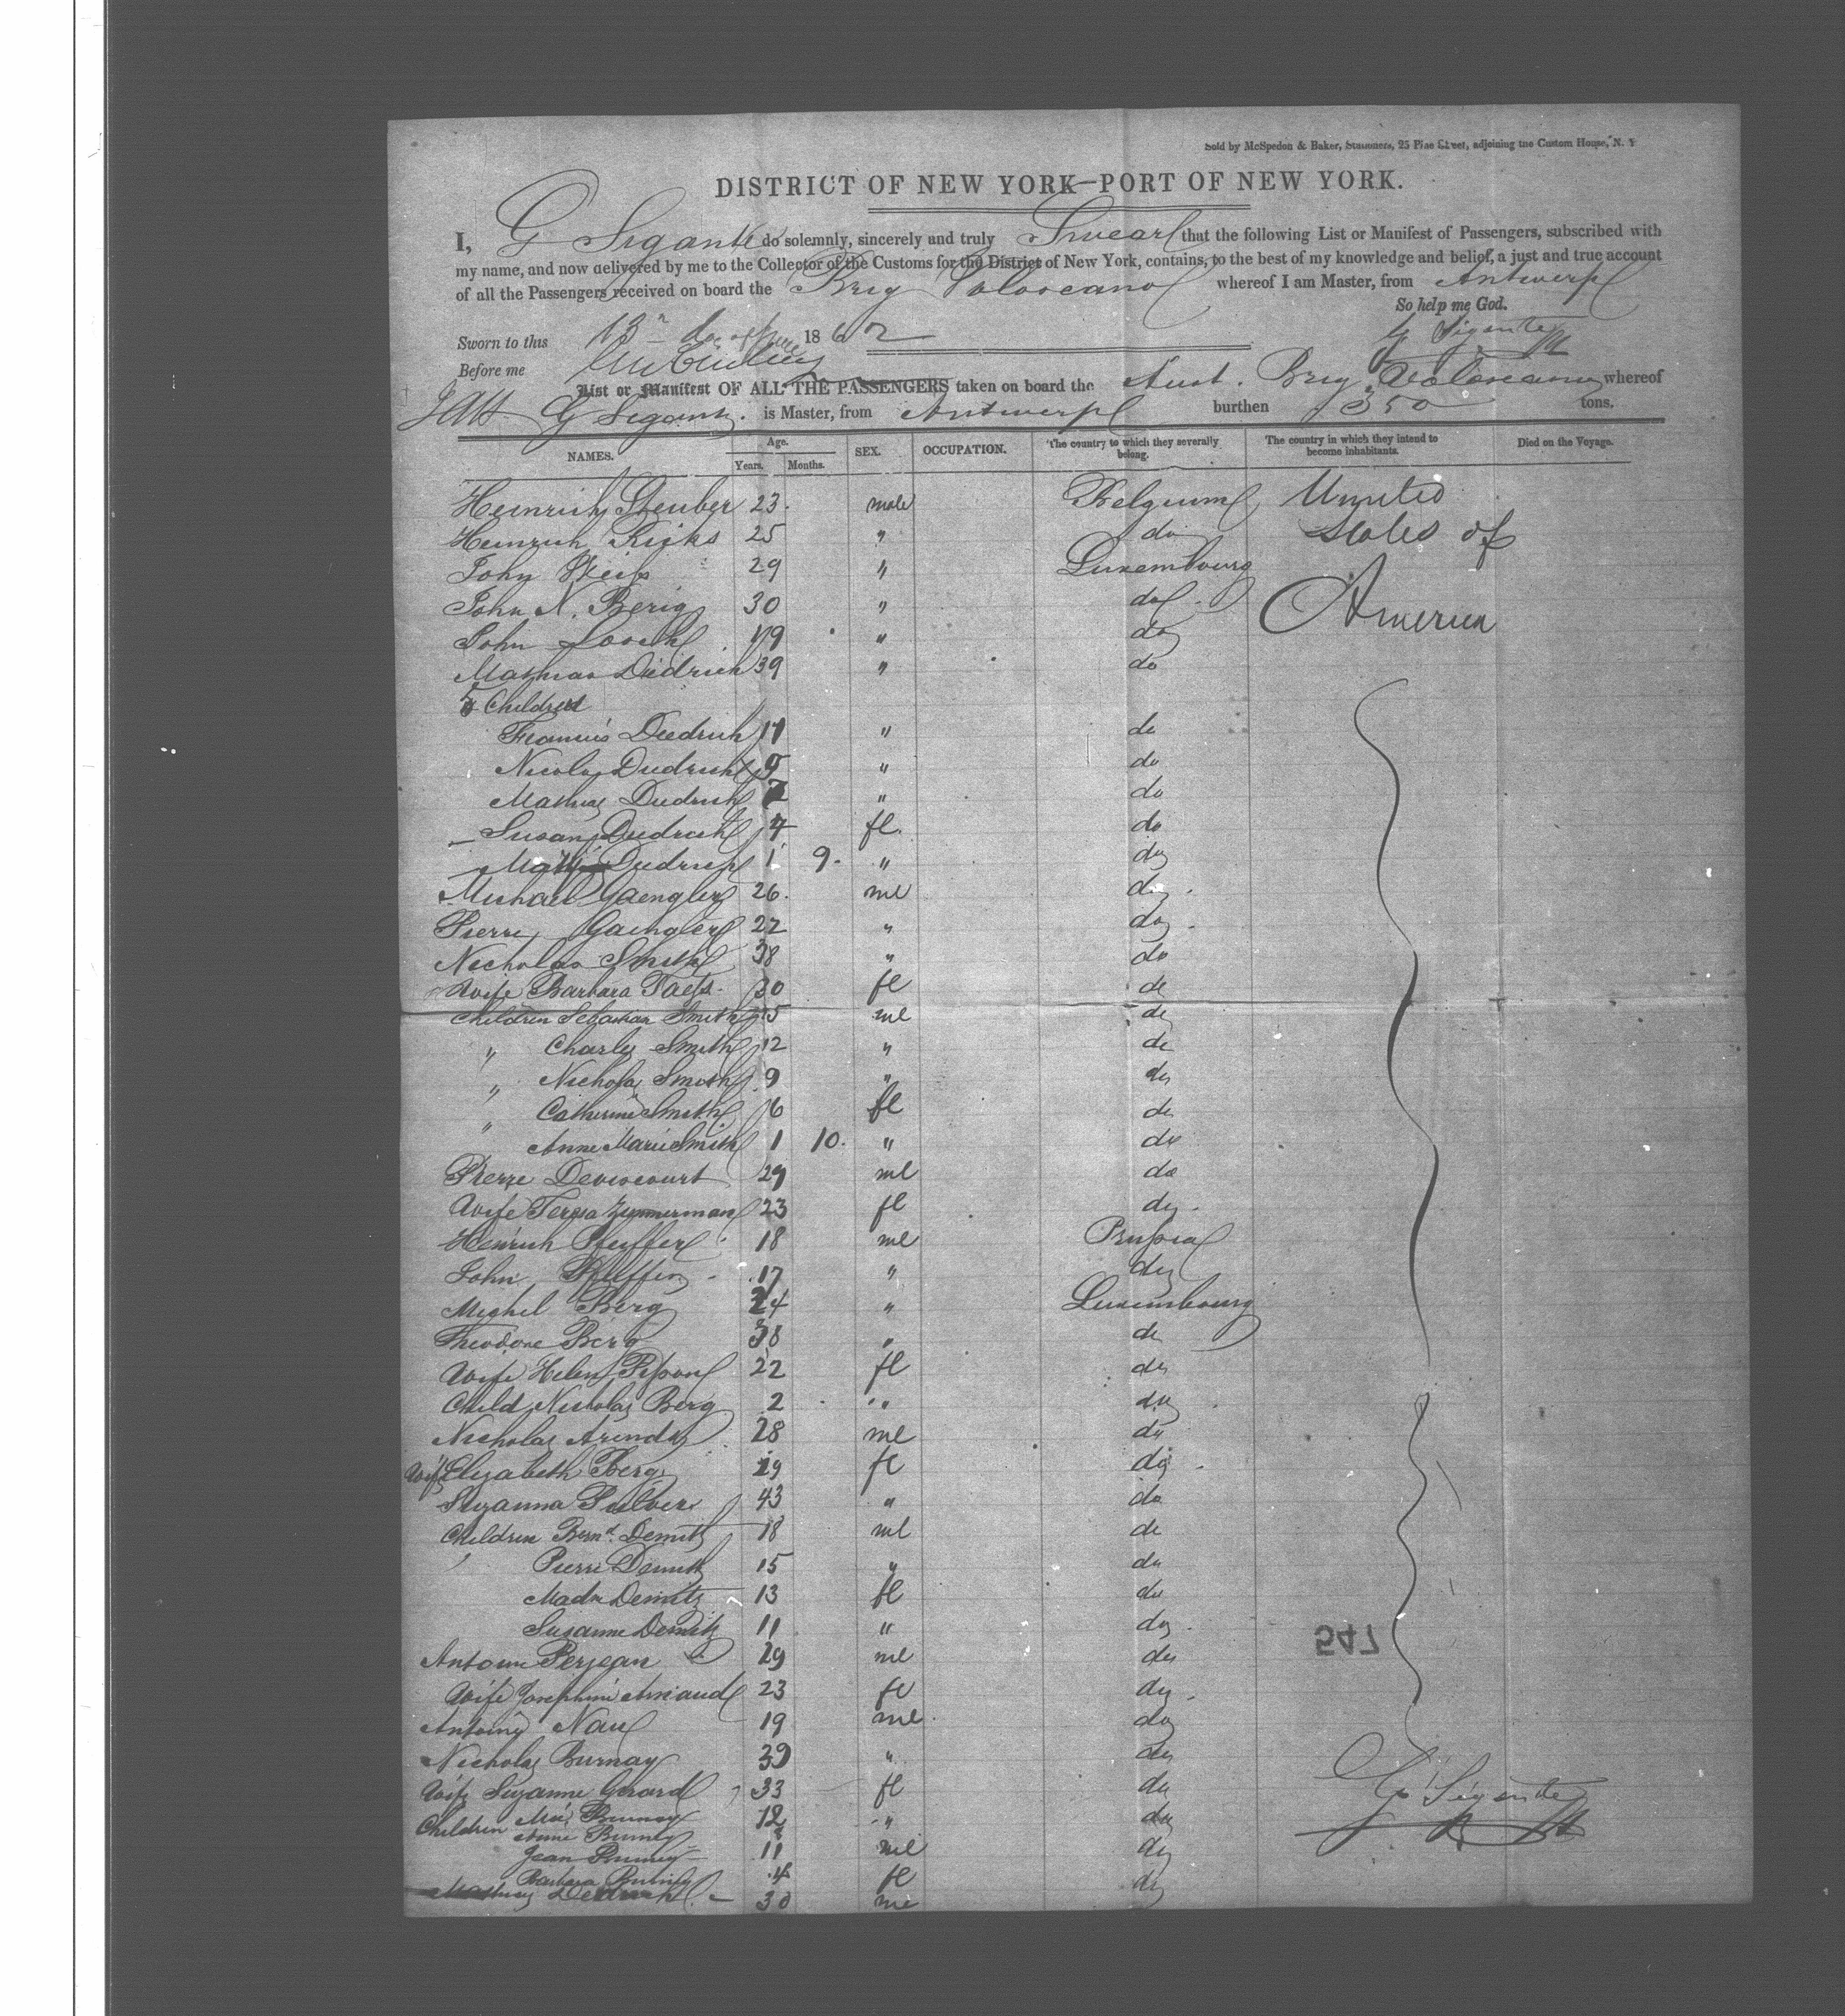 Sold by McSpedon & Baker, Stationers, 25 Pine Street, adjoining the Custom House, N. Y
DISTRICT OF NEW YORK—PORT OF NEW YORK.
I, G Sigante do solemnly, sincerely and truly Swear that the following List or Manifest of Passengers, subscribed with
my name, and now delivered by me to the Collector of the Customs for the District of New York, contains, to the best of my knowledge and belief, a just and true account
of all the Passengers received on board the Brig whereof I am Master, from Antwerp
So help me God.
Sworn to this 13 1862 G Sigante
Before me
List or Manifest OF ALL THE PASSENGERS taken on board the Aust. Brig whereof
G Sigante. is Master, from Antwerp burthen 350 tons.
NAMES. Age. Years. Months. SEX. OCCUPATION. The country to which they severally belong. The country in which they intend to become inhabitants. Died on the Voyage.
Heinrich Steuber 23 male Belgium United
Heinrich Ricks 25 " do States of
John Weis 29 " Luxembourg
John N. Berig 30 " do America
John 49 " do
Mathias Diedrich 39 " do
5 Children
Francis Diedrich 11 " do
Nicolas Diedrich 9 " do
Mathias Diedrich 7 " do
Susan Diedrich 4 fl. do
Diedrich 1 9. " do
Michael Gaengler 26. ml do
Pierre Gaingler 22 " do
Nicholas Smith 38 " do
Wife Barbara 30 fl do
Children Sebastian Smith 15 ml do
" Charles Smith 12 " do
" Nicholas Smith 9 " do
" Catherine Smith 6 fl do
Anne Marie Smith 1 10. " do
Pierre Deviscourt 29 ml do
Wife Teresa Zummerman 23 fl do
Heinrich Pfeiffer 18 ml Prussia
John Pfeiffer 17 " do
Michel Berg 24 " Luxembourg
Theodore Berg 38 " do
Wife Helen 22 fl do
Child Nicholas Berg 2 " do
Nicholas Arend 28 ml do
Wife Elizabeth Berg 29 fl do
Suzanna 43 " do
Children Bernd. Demitz 18 ml do
Pierre Demitz 15 " do
Madn Demitz 13 fl do
Susanne Demitz 11 " do
547
Antoine Perjean 29 ml do
Wife Josephine Arnaud 23 fl do
Antoine Nau 19 ml do
Nicholas Burnay 39 " do
Wife Suzanne Gerard 33 fl do
G Sigante
Children Burnay 12 " do
Anne Burnay
Jean Burnay 11 ml do
Barbara Burnay 4 fl do
Mathias Diedrich 30 ml do